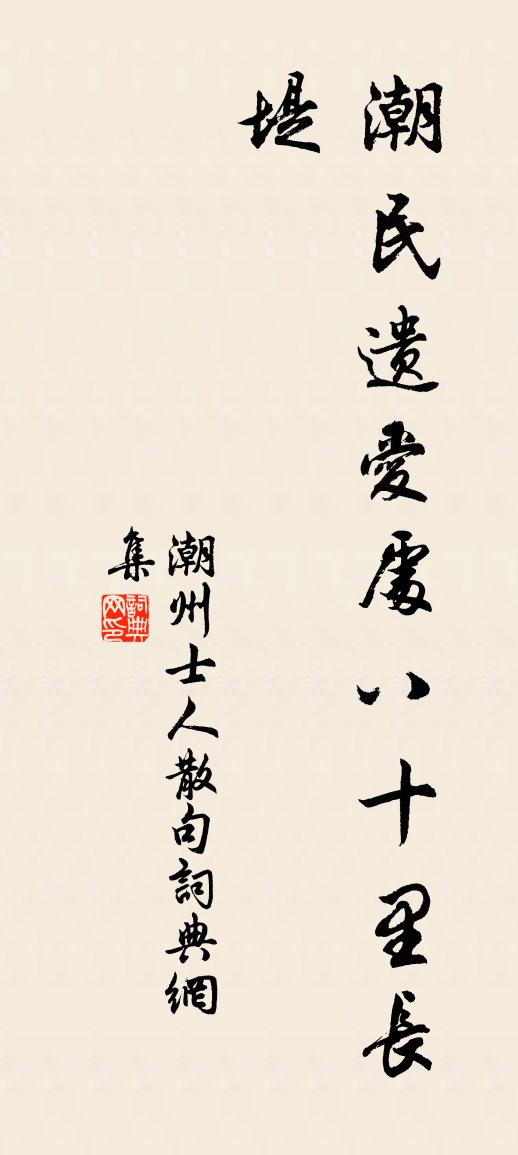 潮民遺愛處八十里長
堤
潮州士人散句詞典網
集
詞典
网印